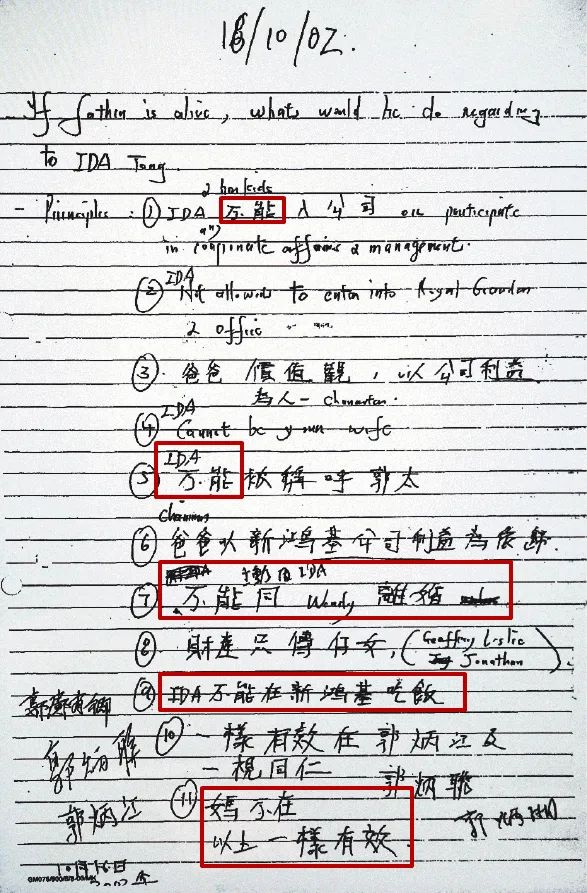 16/10/02.
If father is alive, what would he do regarding
to IDA Tong.
2 her kids
- Principles : ① IDA 不能 入公司 or participate
any
in corporate affairs & management.
IDA
② Not allowed to enter into Royal Garden
& office
③ 爸爸 價值觀, 以公司利益
為人 - character.
IDA
④ Cannot be your wife
IDA
⑤ 不能被稱呼郭太
chairman
⑥ 爸爸以新鴻基公司利益為依歸.
主動因 IDA
⑦ 不能同 Wendy 離婚
⑧ 財產只傳仔女, (Geoffrey Leslie
Jonathan).
⑨ IDA 不能在新鴻基吃飯
⑩ 一樣有效在 郭炳江及
一視同仁 郭炳聯
⑪ 媽不在
以上一樣有效.
郭炳江
10月16日
2002年